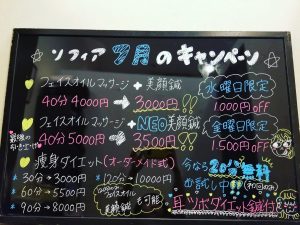 ☆ ソフィア 7月のキャンペーン ☆
フェイスオイルマッサージ + 美顔鍼
40分 4000円 → 3000円!!
水曜日限定
1.000円OFF
フェイスオイルマッサージ + NEO美顔鍼
40分 5000円 → 3500円!!
金曜日限定
1.500円OFF
痩身ダイエット(オーダーメイド式)
*30分→3000円 *120分→10000円
*60分→5500円
*90分→8000円
美顔鍼も可能♪
今なら20分無料
お試し中!!
耳ツボダイエット鍼付き